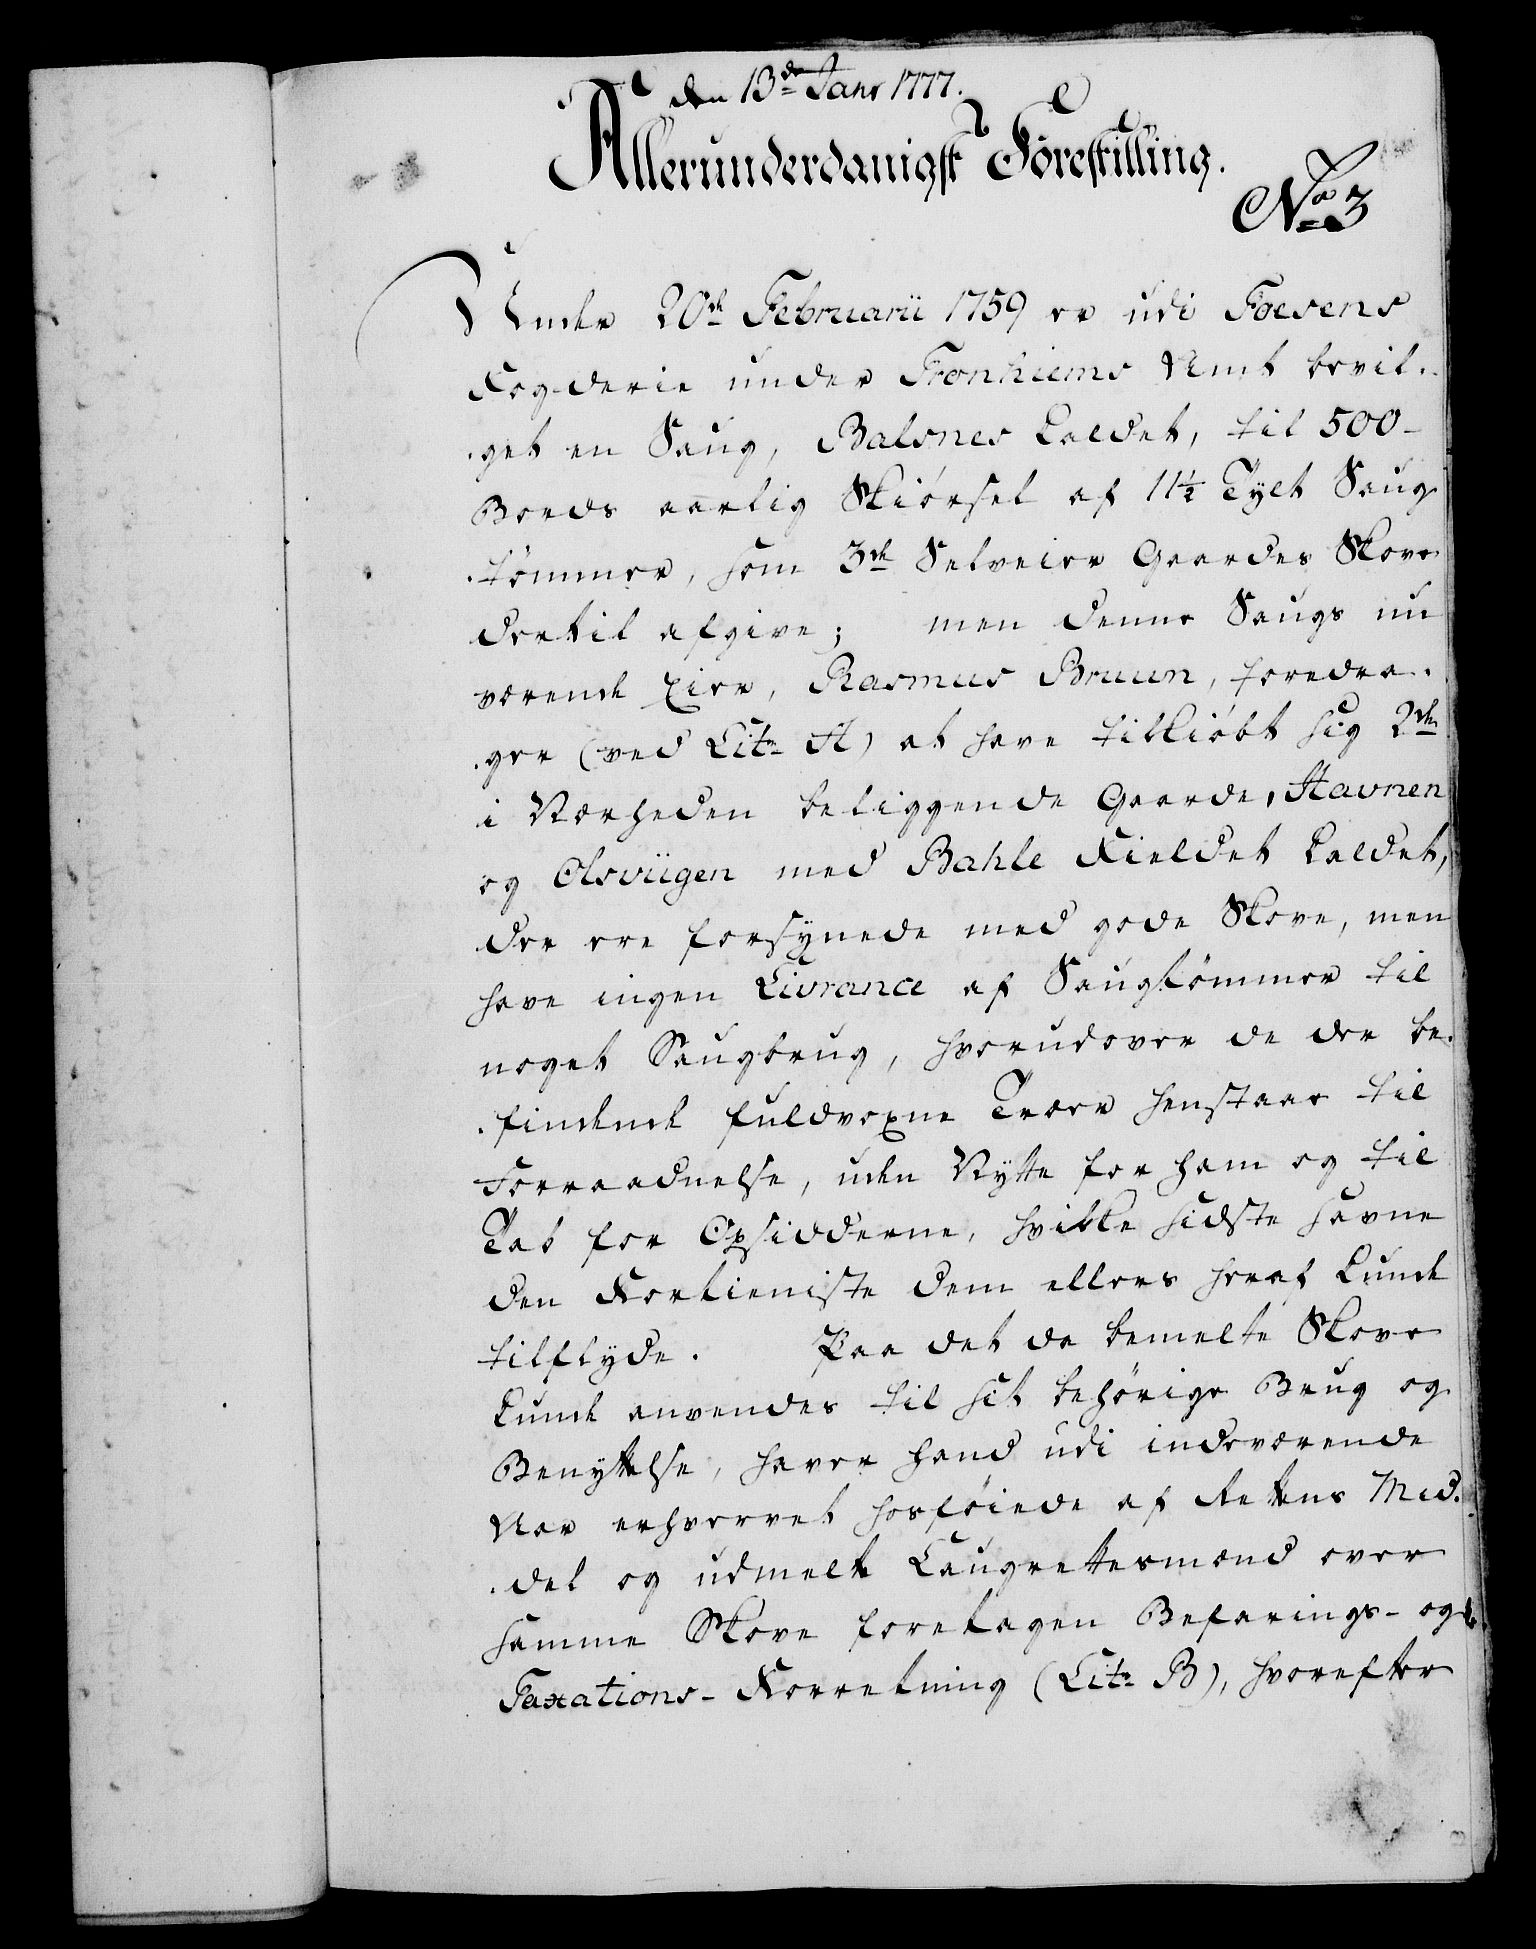 den 13de Janr 1777.
Allerunderdanigst Forestilling.
No 3
Under 20de Februarii 1759 er udi Foesens
Fogderie under Tronhiems Amt bevil-
get en Saug, Balsnes kaldet, til 500-
Bords aarlig Skiörsel af 11½ Tylt Saug-
tömmer, som 3de Selveier Gaardes Skove
dertil afgive; men denne Saugs nu
værende Eier, Rasmus Bruun, foredra-
ger (ved Litr A) at have tilkiöbt sig 2de
i Nærheden beliggende Gaarde, Havnen
og Olsviigen med Bahle Fieldet kaldet,
der ere forsynede med gode Skove, men
have ingen Livrance af Saugtömmer til
noget Saugbrug, hvorudover de der be-
findende fuldvoxne Træer henstaar til
Forraadnelse, uden Nytte for ham og til
Tab for Opsidderne, hvilke sidste savne
den Fortieniste dem ellers heraf kunde
tilflyde. Paa det da bemelte Skove
kunde anvendes til sit behörige Brug og
Benyttelse, haver hand udi indeværende
Aar erhvervet hosföiede af Rettens Mid-
del og udmelte Laugrettesmænd over
samme Skove foretagen Befarings- og
Taxations- Forretning (Litr B), hvorefter